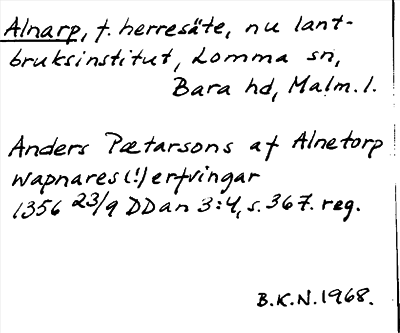 Alnarp, f. herresäte, nu lant-
bruksinstitut, Lomma sn,
Bara hd, Malm. l.
Anders Pætarsons af Alnetorp
wapnares (!) erfvingar
1356 23/9 DDan 3:4, s. 367. reg.
B.K.N. 1968.